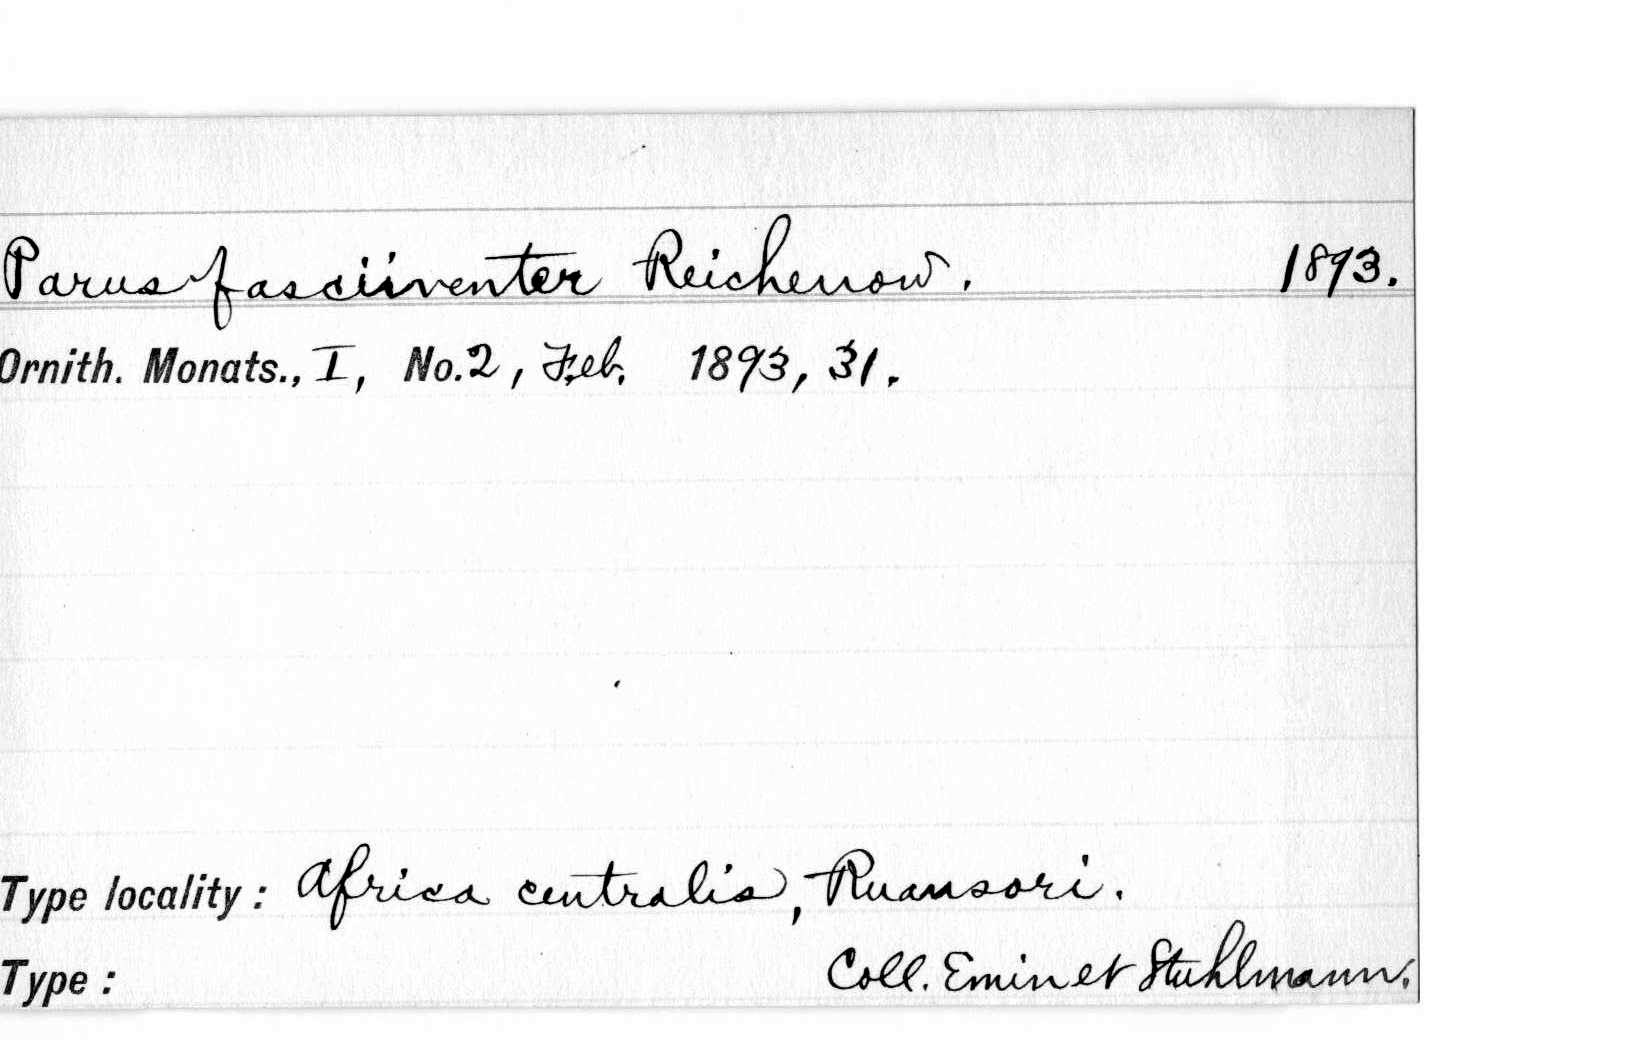 Parus fasciiventer Reichenow. 1893.
Ornith. Monats., I, No. 2, Feb. 1893, 31.
Type locality: Africa centralis, Ruansori.
Type: Coll. Emin et Stuhlmann.